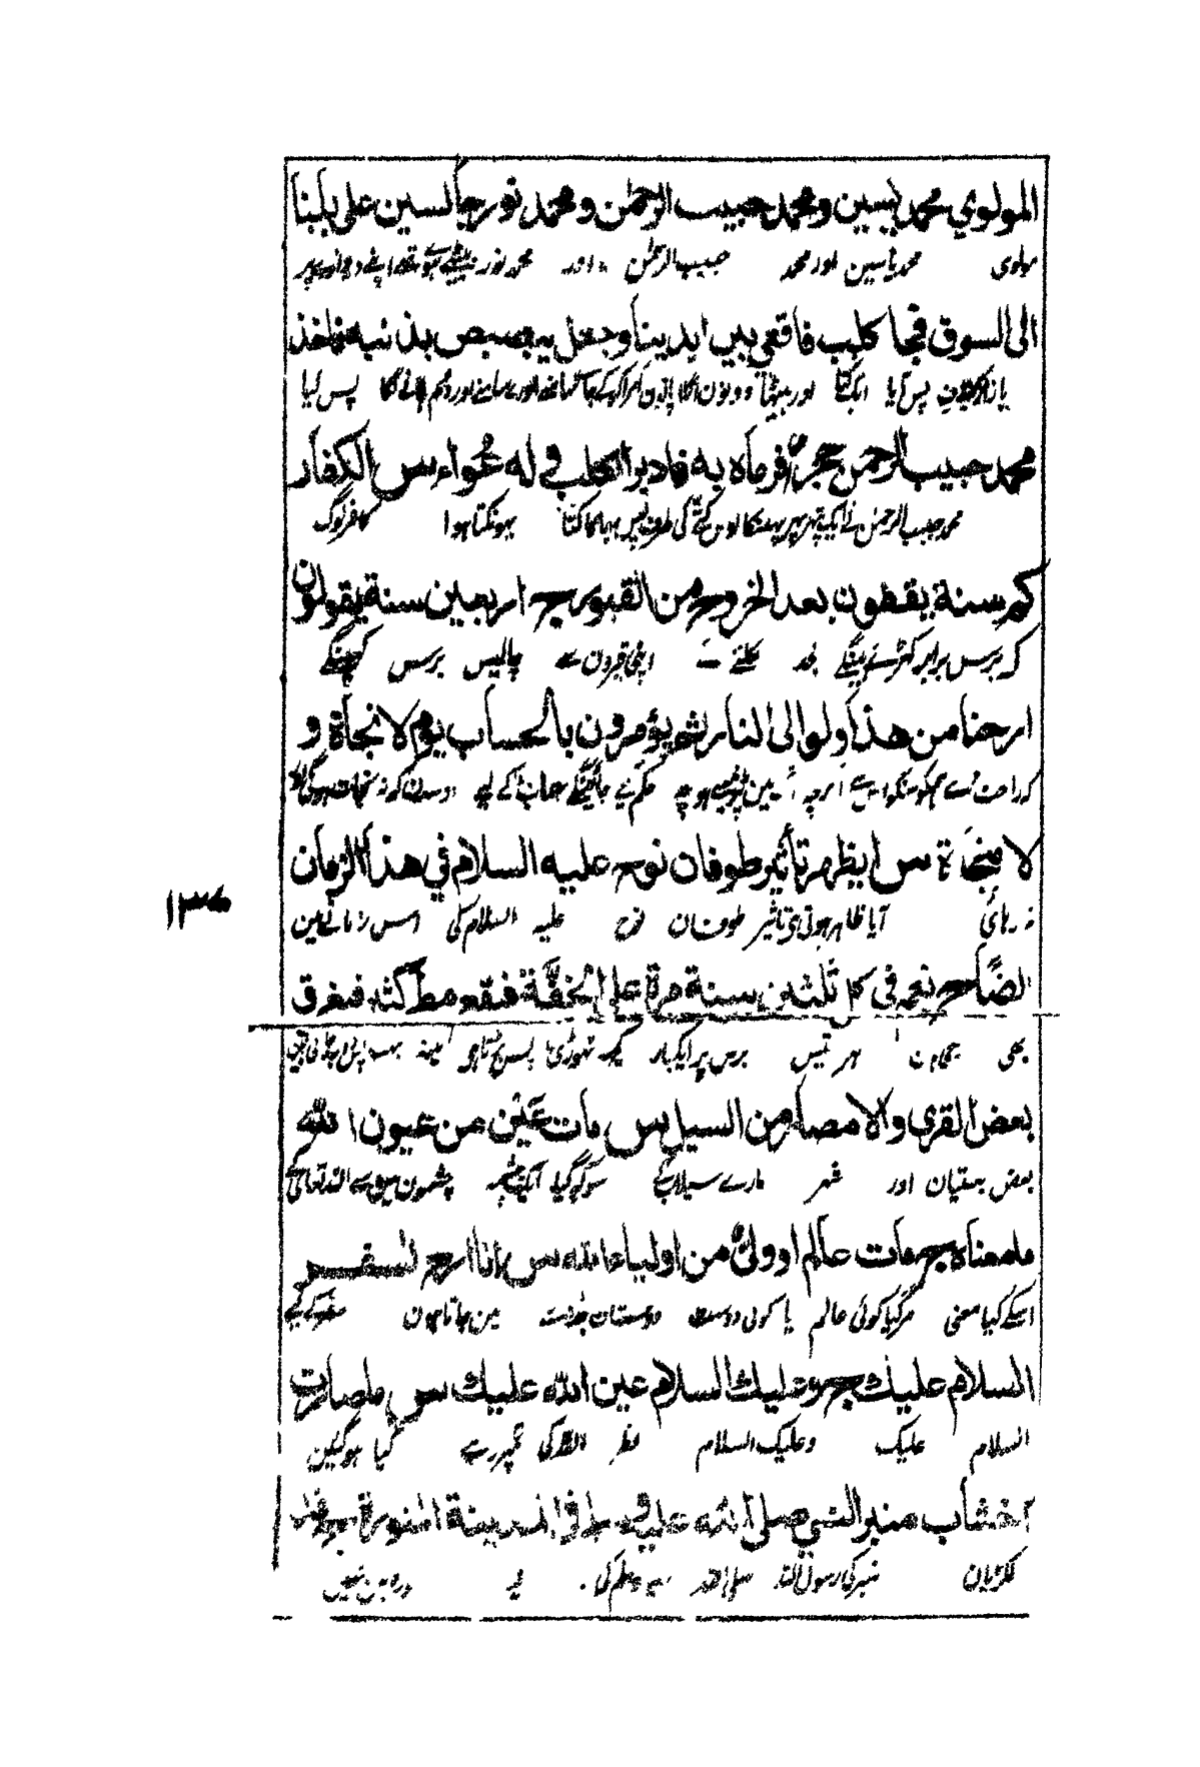 المولوي محمد يسين ومحمد حبيب الرحمن ومحمد نور جالسين على بابنا
مولوی محمد یاسین اور محمد حبیب الرحمٰن اور محمد نور بیٹھے ہوئے تھے اپنے دروازے پر
الى السوق فجا كلب فاقعى بين ايدينا وجعل يبصبص بذنبه فاخذ
پس آیا ایک کتا اور بیٹھا پس لیا
محمد حبيب الرحمن حجرا فرماه به فادبر الكلب له عواء س الكفار
محمد حبیب الرحمن نے ایک پتھر پھر پھینکا اوس کتے کی طرف پس بھاگا کتا بھونکتا ہوا کافر لوگ
كم سنة يقفون بعد الخروج من القبور ج اربعين سنة يقولون
کے برس برابر کھڑے رہینگے بعد نکلنے کے اپنی قبرون سے چالیس برس کہینگے
ارحنا من هذا ولو الى النار ثم يؤمرون بالحساب يوم لا نجاة و
کہ راحت دے ہمکو حکم کئے جائینگے حساب کے لیے
لا منجاة س ايظهر تأثير طوفان نوح عليه السلام في هذا الزمان
نہ رہائی آیا ظاہر ہوتی ہی تاثیر طوفان نوح علیہ السلام کی اس زمانے مین
١٣٦
ايضا ج نعم في كل ثلثين سنة مرة على الخفة فيقع مطر كثير فيغرق
بھی ہر تیس برس پر ایکبار کچھ تھوڑی پس
بعض القرى والامصار من السيل س مات عين من عيون الله
بعض بستیان اور شہر مارے سیلاب کے سوکھ گیا ایک چشمہ چشمون مین سے اللہ تعالی کے
ما معناه ج مات عالم او ولي من اولياء الله س انا ارح لسفر
اسکے کیا معنی مر گیا کوئی عالم یا کوئی دوست دوستان خدا سے مین جاتا ہون سفر کے لیے
السلام عليك ج وعليك السلام عين الله عليك س ما صارت
السلام علیک وعلیک السلام نظر اللہ کی تجھپر رہے کیا ہو گئین
اخشاب منبر النبي صلى الله عليه وسلم في المدينة المنورة
لکڑیان منبر کی رسول اللہ صلی اللہ علیہ وسلم کی